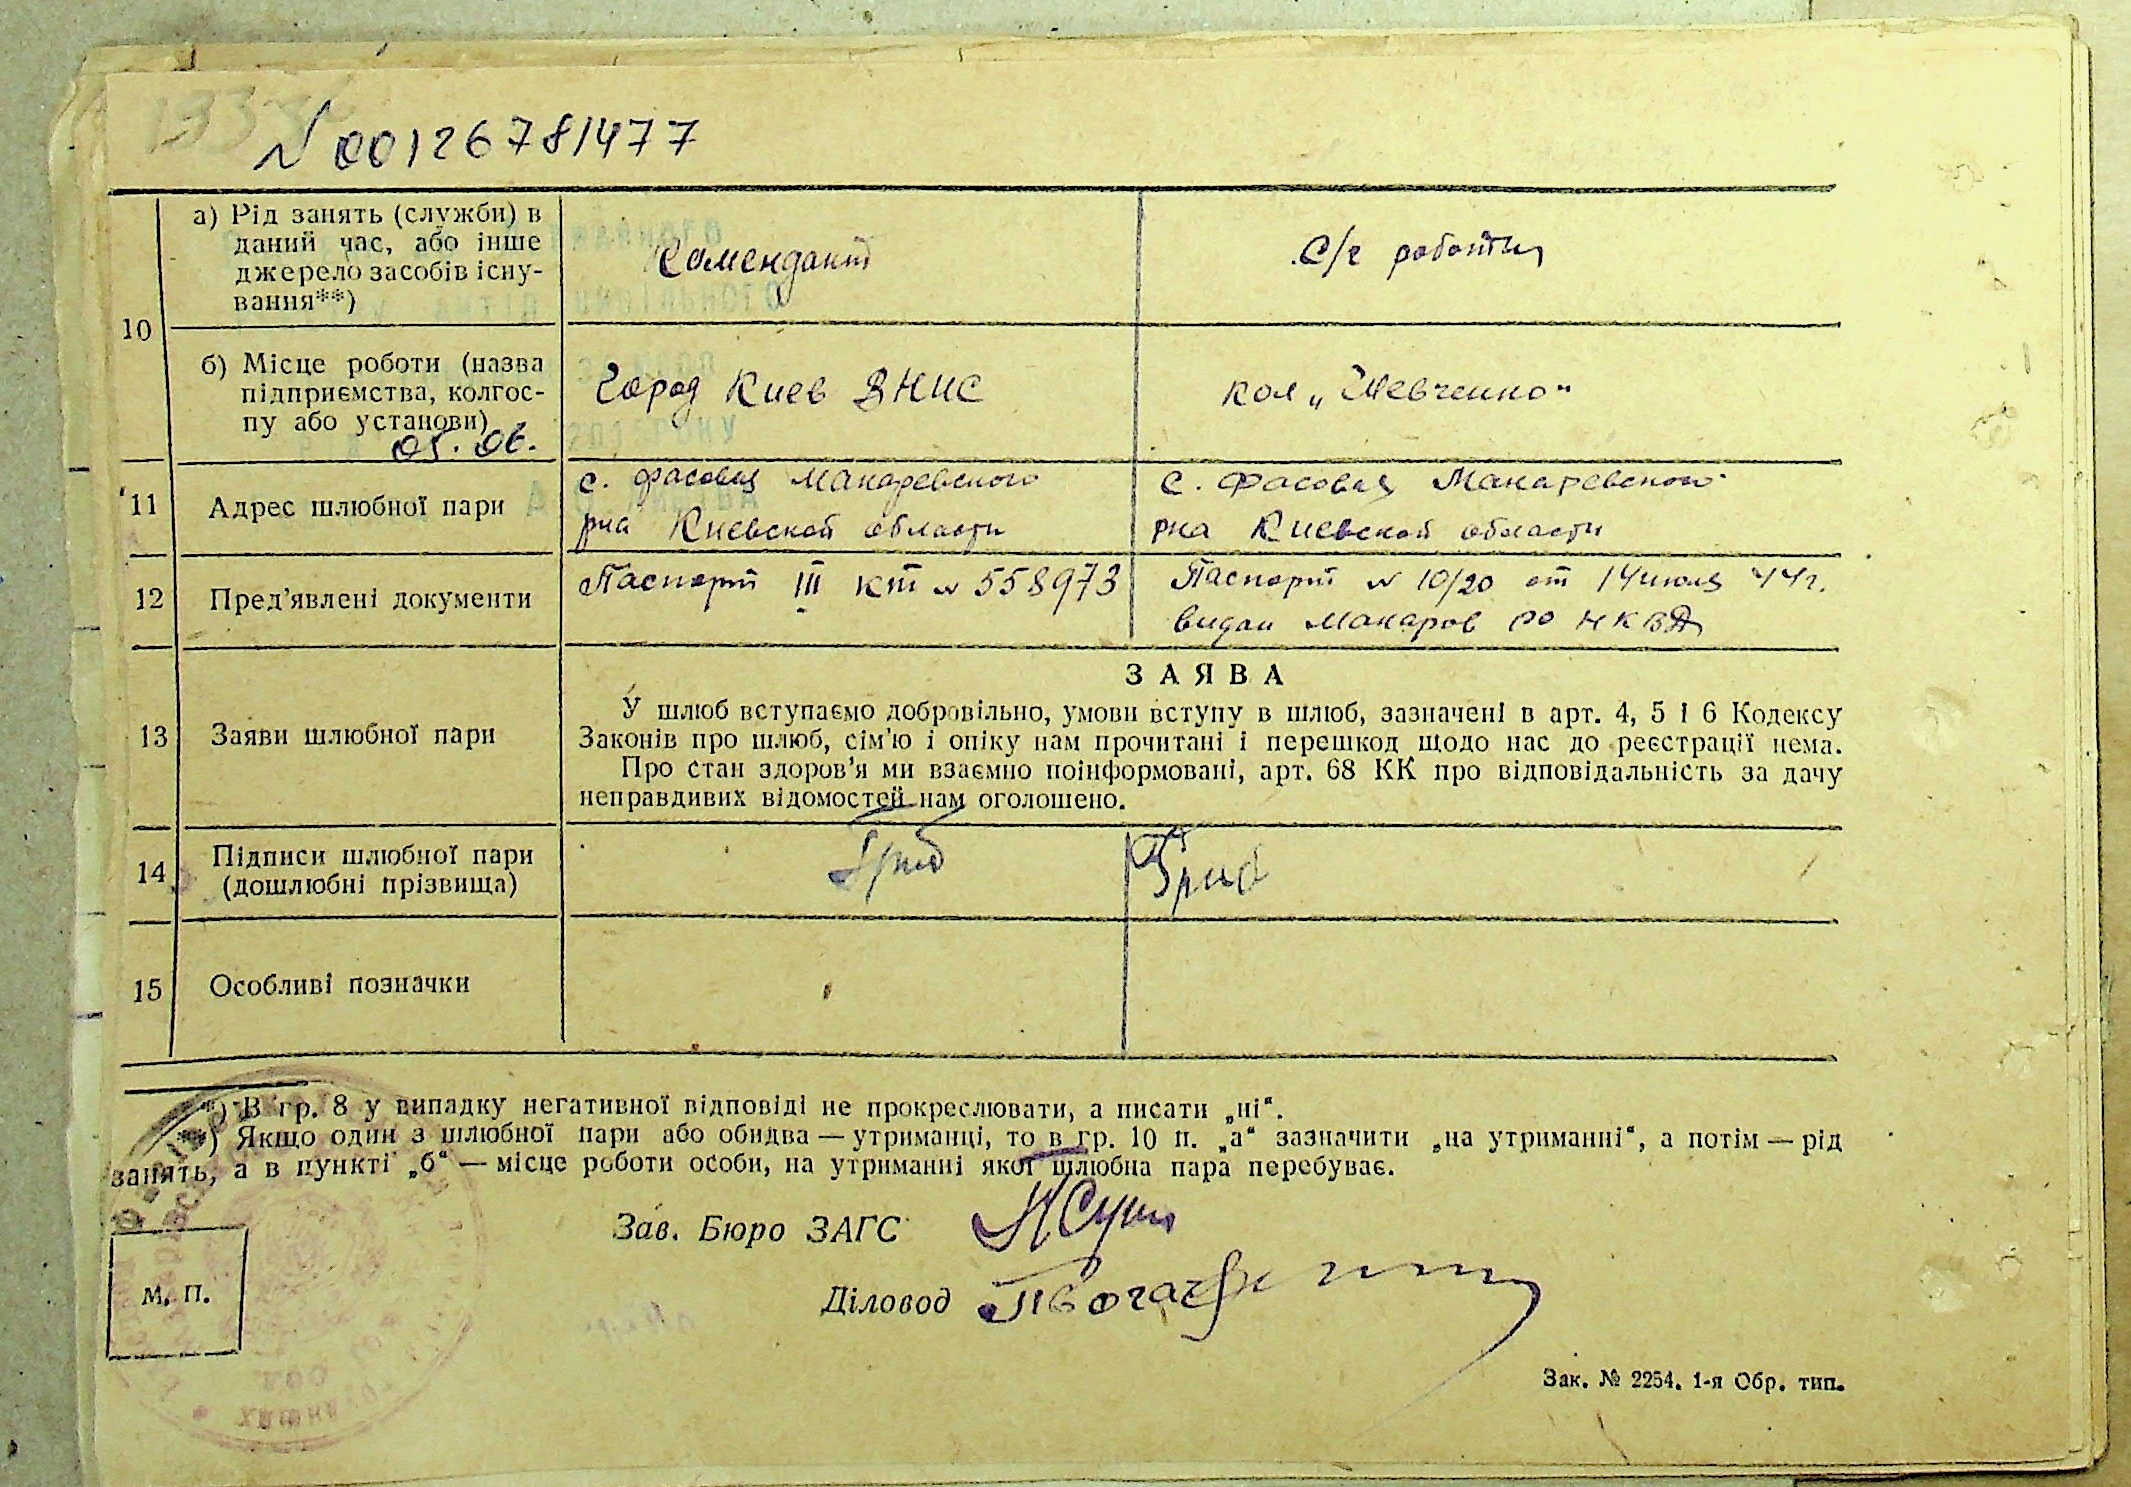 N 00126781477
10
а) Рід занять (служби) в
даний час, або інше
джерело засобів існу-
вання**)
Комендант
С/г работни
б) Місце роботи (назва
підприємства, колгос-
пу або установи)
05. 06.
Город Киев ВНИС
кол „Шевченко“
11
Адрес шлюбної пари
с. Фасовая Макаревского
рна Киевской области
с. Фасовая Макаревского
рна Киевской области
12
Пред’явлені документи
Паспорт III кт N 558973
Паспорт N 10/20 от 14 июля 44г.
видан Макаров РО НКВД
13
Заяви шлюбної пари
ЗАЯВА
У шлюб вступаємо добровільно, умови вступу в шлюб, зазначені в арт. 4, 5 і 6 Кодексу
Законів про шлюб, сім’ю і опіку нам прочитані і перешкод щодо нас до реєстрації нема.
Про стан здоров’я ми взаємно поінформовані, арт. 68 КК про відповідальність за дачу
неправдивих відомостей нам оголошено.
14
Підписи шлюбної пари
(дошлюбні прізвища)
15
Особливі позначки
*) В гр. 8 у випадку негативної відповіді не прокреслювати, а писати „ні“.
**) Якщо один з шлюбної пари або обидва — утриманці, то в гр. 10 п. „а“ зазначити „на утриманні“, а потім — рід
занять, а в пункті „б“ — місце роботи особи, на утриманні якої шлюбна пара перебуває.
Зав. Бюро ЗАГС
Діловод
М. П.
Зак. № 2254. 1-я Обр. тип.